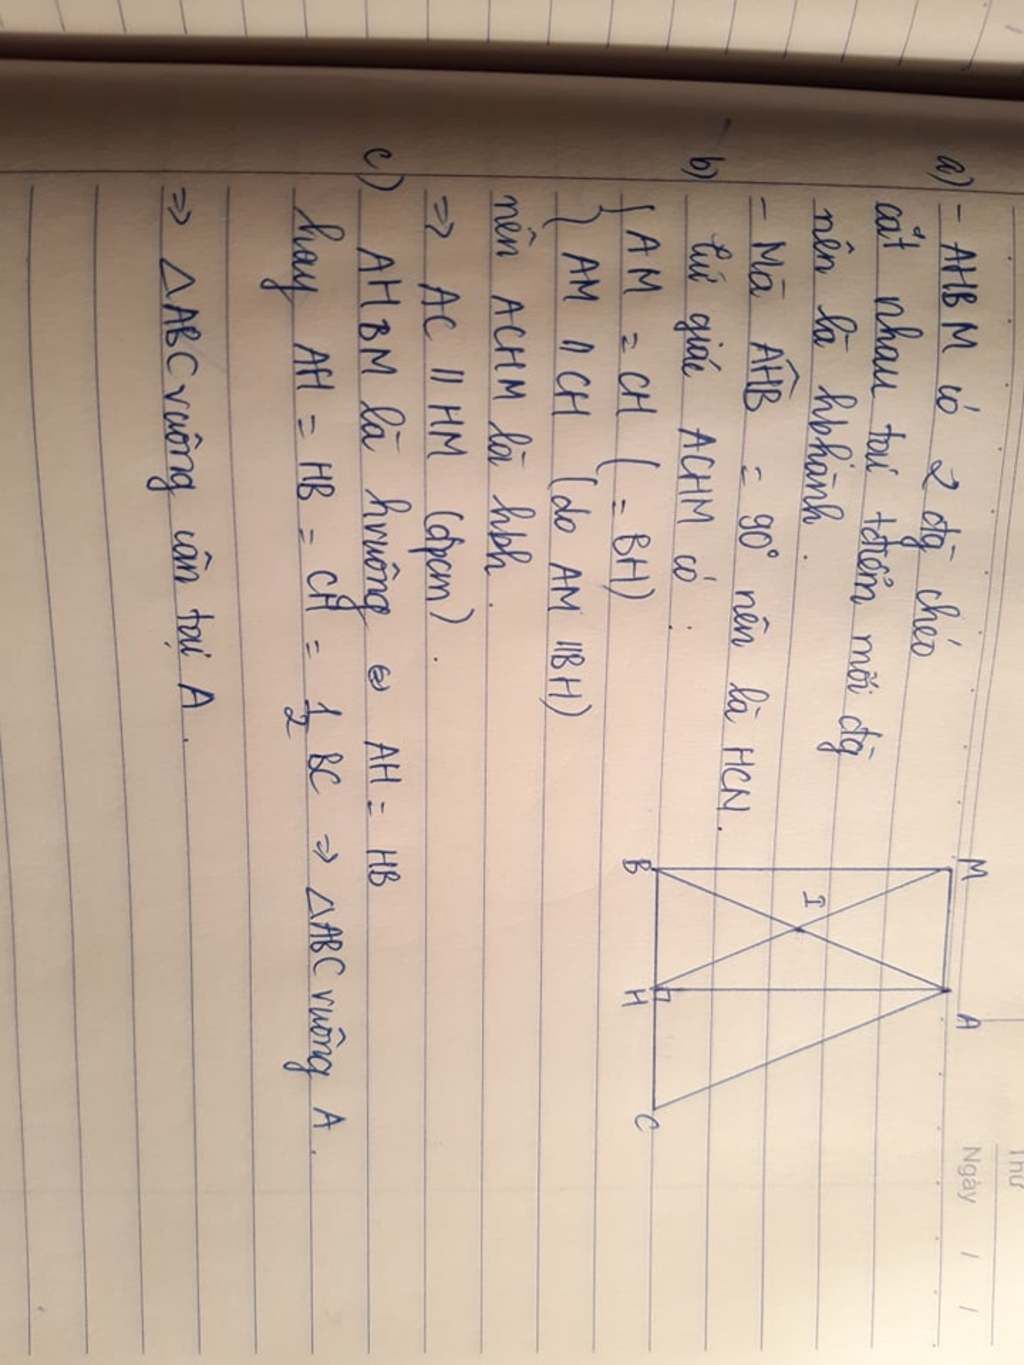 Thứ
Ngày / /
a) - AHBM có 2 đg chéo
cắt nhau tại tđiểm mỗi đg
nên là hbhành.
- Mà AHB = 90° nên là HCN.
b) tứ giác ACHM có :
{ AM = CH ( = BH)
AM // CH (do AM // BH)
nên ACHM là hbh.
=> AC // HM (đpcm).
c) AHBM là hvuông <=> AH = HB
hay AH = HB = CH = 1/2 BC => △ABC vuông A.
=> △ABC vuông cân tại A.
M
A
I
B
H
C